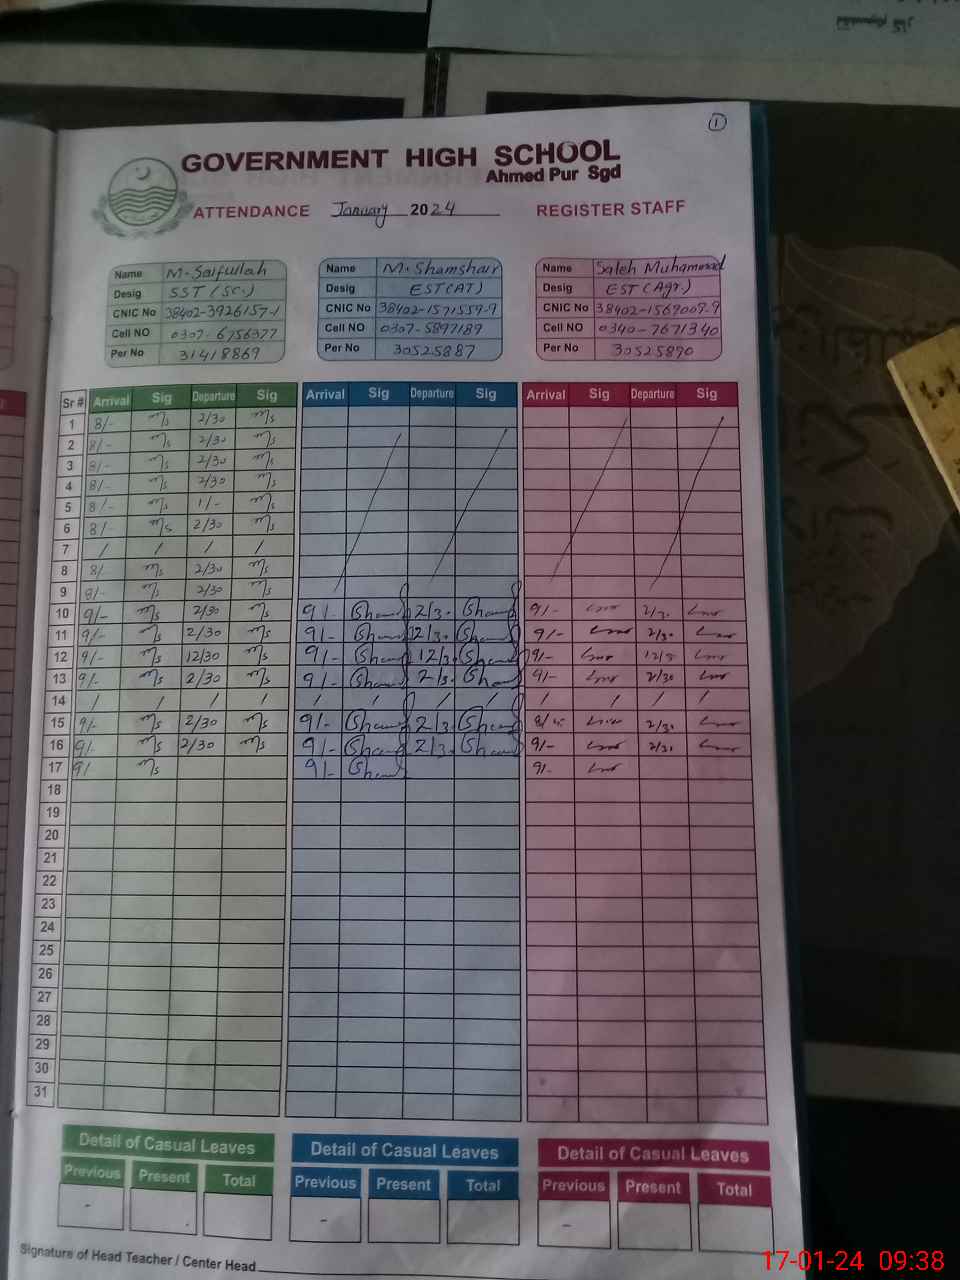 1
GOVERNMENT HIGH SCHOOL
Ahmed Pur Sgd
ATTENDANCE January 2024 REGISTER STAFF
Name M. Saifullah Name M. Shamshair Name Saleh Muhammad
Desig SST (Sc.) Desig EST (AT) Desig EST (Agr.)
CNIC No 38402-3926157-1 CNIC No 38402-1571559-9 CNIC No 38402-1569009-9
Cell NO 0307-6756377 Cell NO 0307-5897189 Cell NO 0340-7671340
Per No 31418869 Per No 30525887 Per No 30525890
Sr # Arrival Sig Departure Sig Arrival Sig Departure Sig Arrival Sig Departure Sig
1 8/- Ms 2/30 Ms
2 8/- Ms 2/30 Ms
3 8/- Ms 2/30 Ms
4 8/- Ms 2/30 Ms
5 8/- Ms 1/- Ms
6 8/- Ms 2/30 Ms
7 / / / /
8 8/- Ms 2/30 Ms
9 8/- Ms 2/30 Ms
10 9/- Ms 2/30 Ms 9/- Sham 2/30 Sham 9/- 2/30
11 9/- Ms 2/30 Ms 9/- Sham 2/30 Sham 9/- 2/30
12 9/- Ms 12/30 Ms 9/- Sham 12/30 Sham 9/- 12/30
13 9/- Ms 2/30 Ms 9/- Sham 2/30 Sham 9/- 2/30
14 / / / / / / / / / / / /
15 9/- Ms 2/30 Ms 9/- Sham 2/30 Sham 2/30
16 9/- Ms 2/30 Ms 9/- Sham 2/30 Sham 9/- 2/30
17 9/- Ms 9/- Sham 9/-
18
19
20
21
22
23
24
25
26
27
28
29
30
31
Detail of Casual Leaves Detail of Casual Leaves Detail of Casual Leaves
Previous Present Total Previous Present Total Previous Present Total
- - -
Signature of Head Teacher / Center Head
17-01-24 09:38